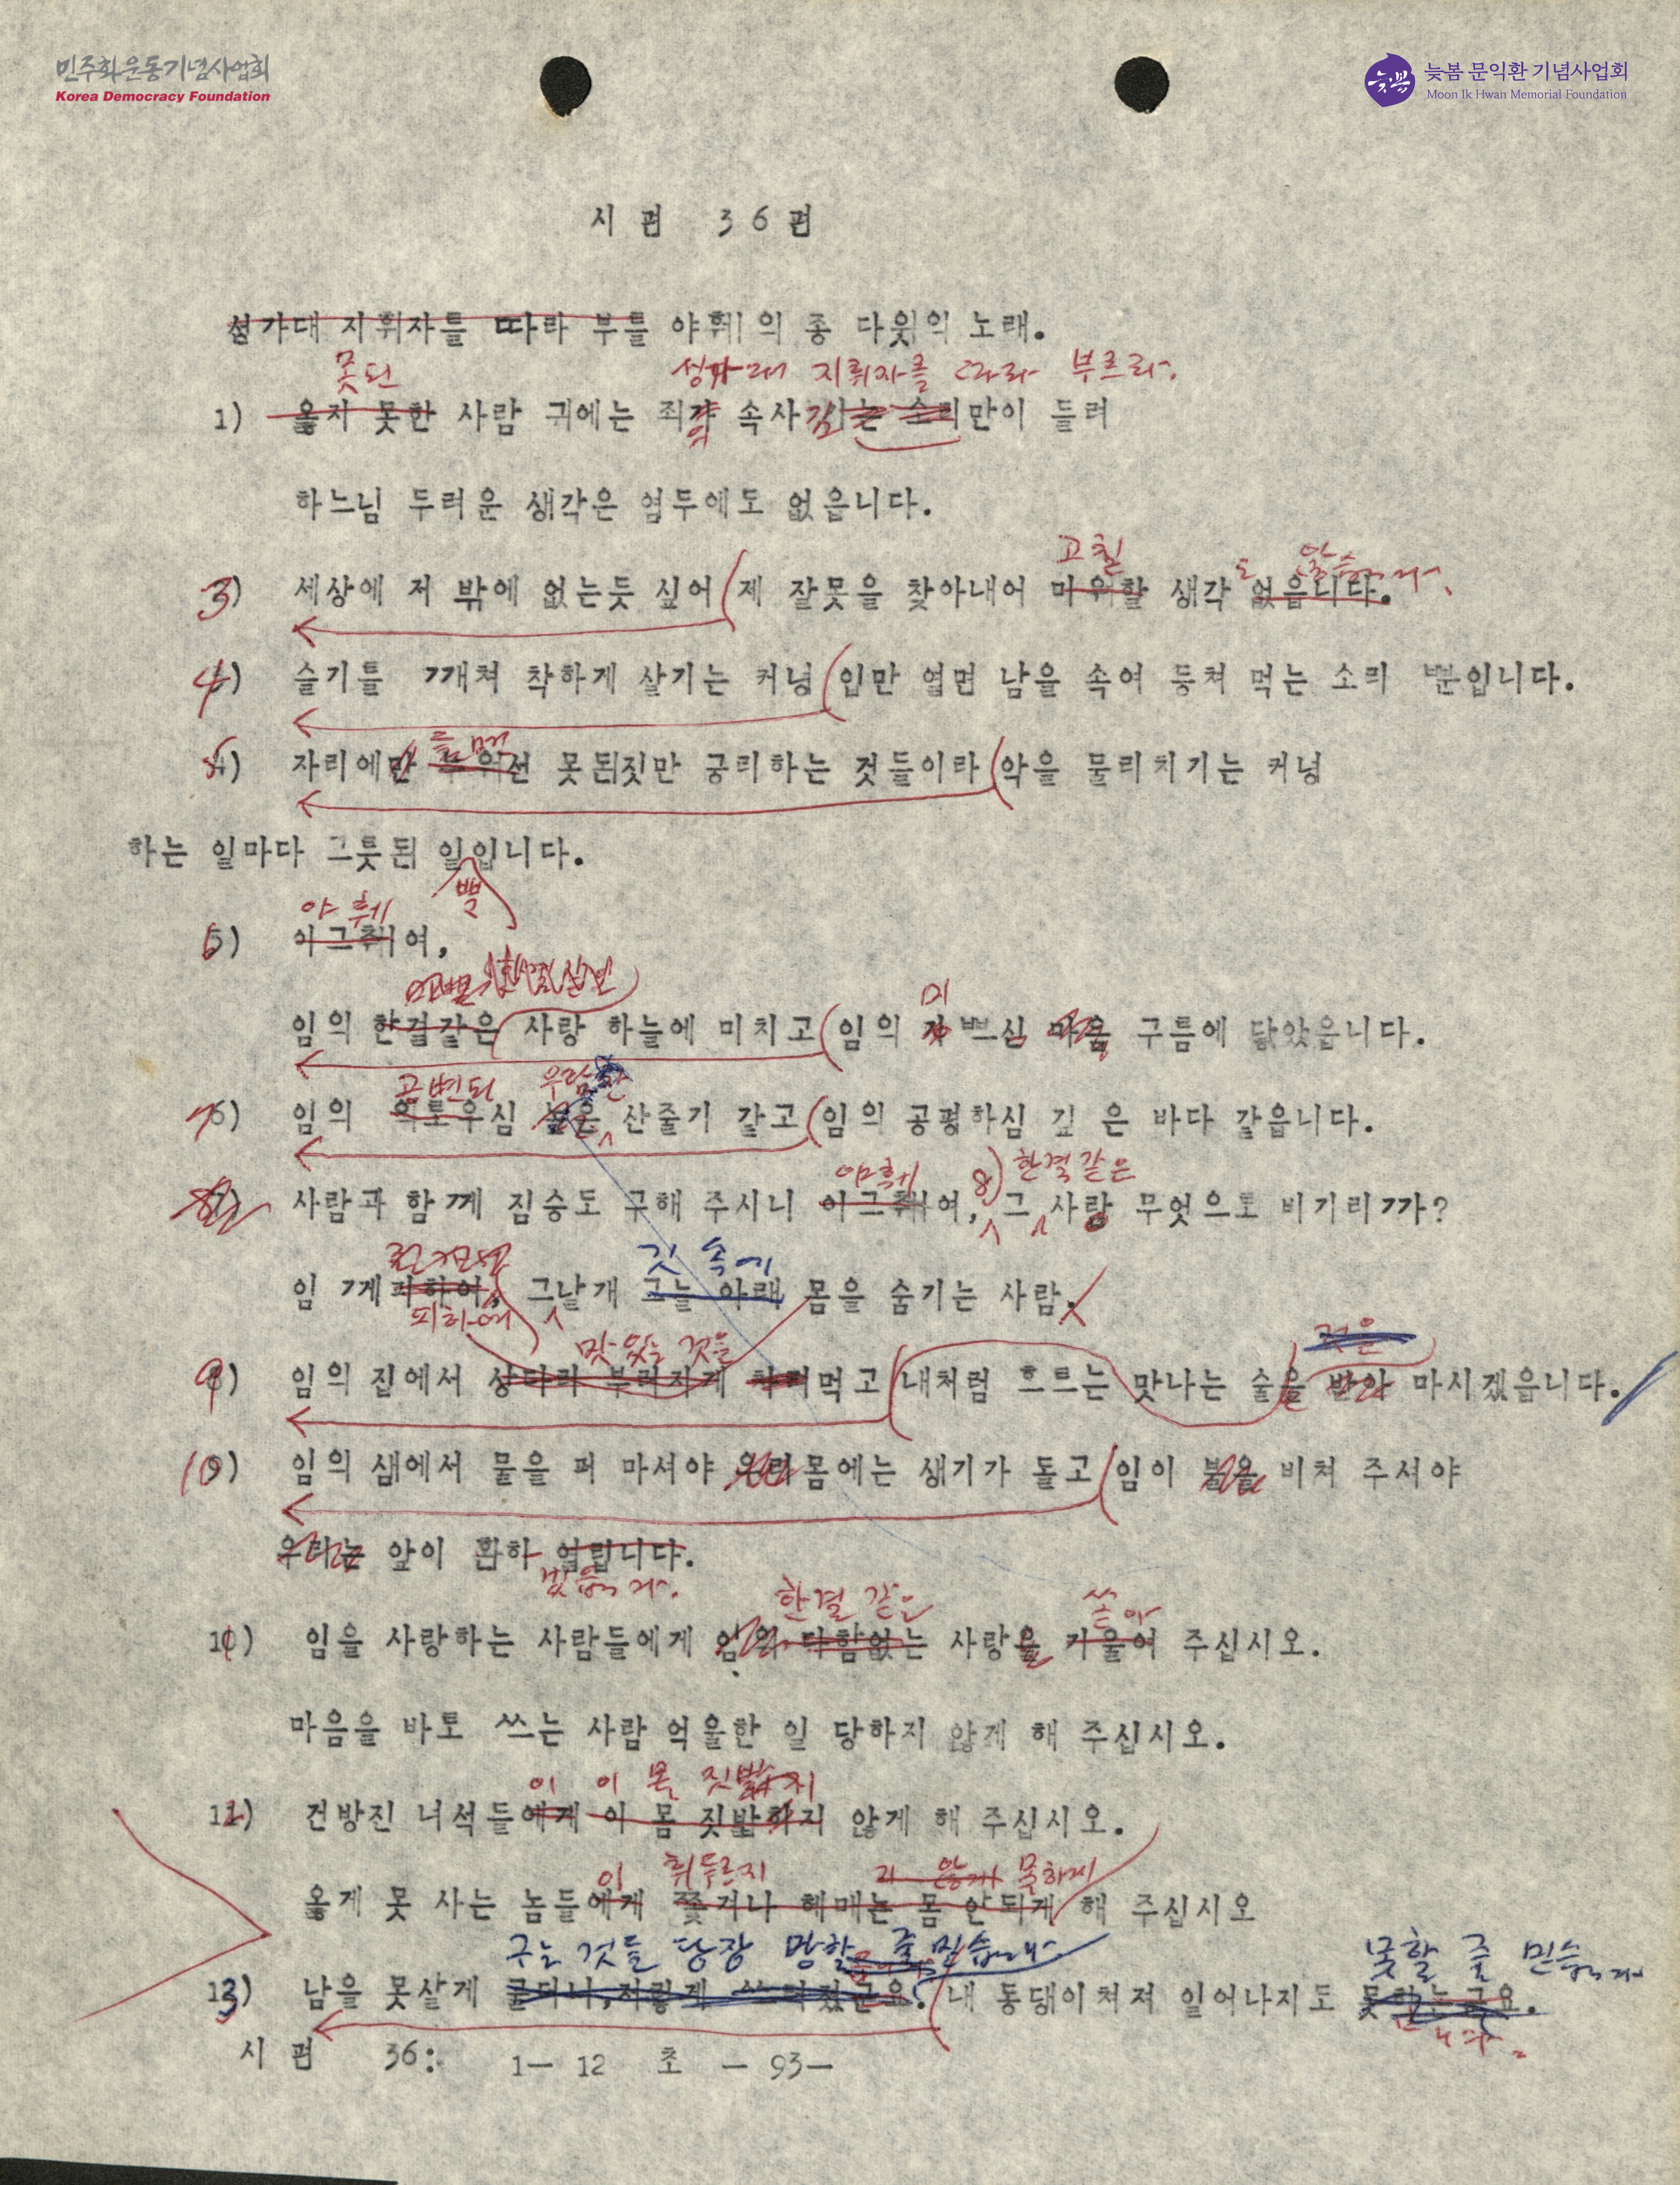 민주화운동기념사업회
Korea Democracy Foundation
늦봄 문익환 기념사업회
Moon Ik Hwan Memorial Foundation
시 편 36편
성가대 지휘자를 따라 부를 야훼의 종 다윗의 노래.
못된 성가대 지휘자를 따라 부르리.
1) 옳지 못한 사람 귀에는 죄 속사 는 소리만이 들려
하느님 두려운 생각은 염두에도 없읍니다.
고칠 도 않습니다.
3) 세상에 저 밖에 없는듯 싶어 제 잘못을 찾아내어 미워할 생각 없읍니다.
4) 슬기를 ㄲ개쳐 착하게 살기는 커녕 입만 열면 남을 속여 등쳐 먹는 소리 뿐입니다.
5) 자리에만 누워선 못된짓만 궁리하는 것들이라 악을 물리치기는 커녕
하는 일마다 그릇된 일입니다.
뿐
야훼
6) 이그훼여,
임의 한결같은 사랑 하늘에 미치고 임의 미쁘심 마음 구름에 닿았읍니다.
공변되 우람한
7) 임의 의로우심 높은 산줄기 같고 임의 공평하심 깊 은 바다 같읍니다.
야훼 8) 한결같은
사람과 함ㄲ게 짐승도 구해 주시니 이그훼여, 그 사랑 무엇으로 비기리ㄲ가?
깃 속에
임 ㄲ게 피하여, 그날개 그늘 아래 몸을 숨기는 사람.
피하여
맛있는 것을 것을
9) 임의 집에서 상다리 부러지게 차려먹고 내처럼 흐르는 맛나는 술을 받아 마시겠읍니다.
10) 임의 샘에서 물을 퍼 마셔야 우리몸에는 생기가 돌고 임이 불을 비쳐 주셔야
우리는 앞이 환하 열립니다.
겠읍니다.
한결 같은 쏟아
11) 임을 사랑하는 사람들에게 임의 다함없는 사랑을 기울여 주십시오.
마음을 바로 쓰는 사람 억울한 일 당하지 않게 해 주십시오.
이 이 몸 짓밟지
12) 건방진 녀석들에게 이 몸 짓밟히지 않게 해 주십시오.
이 휘두르지 못하게
옳게 못 사는 놈들에게 쫓겨나 헤매는 몸 안되게 해 주십시오
구는 것들 당장 망할 줄 믿습니다 못할 줄 믿습니다
13) 남을 못살게 굴더니, 저렇게 쓰러졌군요. 내 동댕이쳐져 일어나지도 못하는군요.
시 편 36: 1— 12 초 — 93—